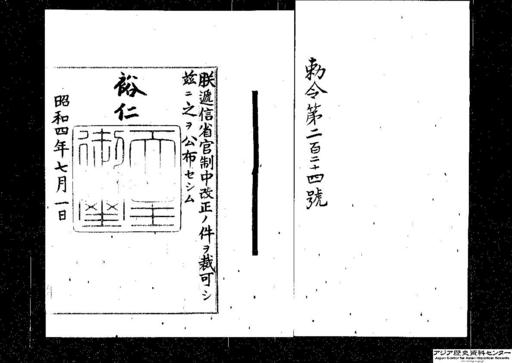 勅令第二百二十四號
朕遞信省官制中改正ノ件ヲ裁可シ
玆ニ之ヲ公布セシム
裕仁
天皇御璽
昭和四年七月一日
アジア歴史資料センター
Japan Center for Asian Historical Records